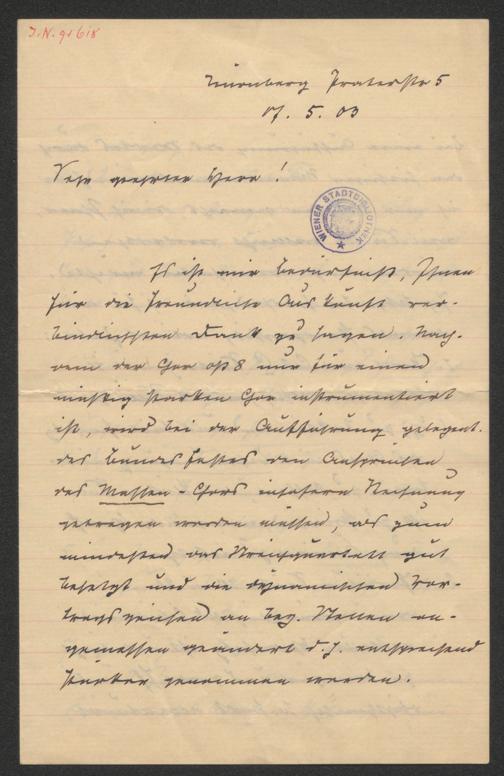 I.N. 91618
Nürnberg Praterstr 5
17. 5. 03
WIENER STADTBIBLIOTHEK
Sehr geehrter Herr!
Es ist mir Bedürfniß, Ihnen
für die freundliche Auskunft ver-
bindlichsten Dank zu sagen. Nach-
dem der Chor op 8 nur für einen
mäßig starken Chor instrumentiert
ist, wird bei der Aufführung gelegent.
des Bundesfestes den Ansprüchen
des Massen-Chors insofern Rechnung
getragen werden müssen, als zum
mindesten das Streichquartett gut
besetzt und die dynamischen Vor-
tragszeichen an bez. Stellen an-
gemessen geändert d.h. entsprechend
stärker genommen werden.